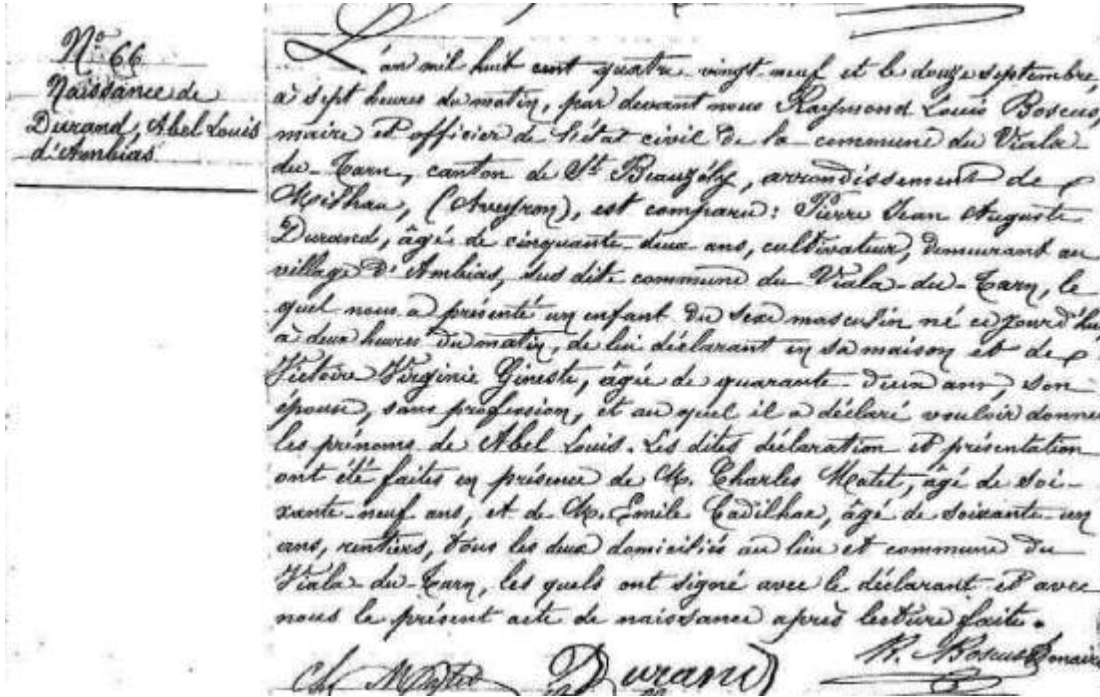 N° 66
Naissance de
Durand, Abel Louis
d'Ambias
L'an mil huit cent quatre-vingt-neuf et le douze septembre,
à sept heures du matin, par devant nous Raymond Louis Boscus,
maire et officier de l'état civil de la commune du Viala-
du-Tarn, canton de St Beauzély, arrondissement de
Milhau, (Aveyron), est comparu: Pierre Jean Auguste
Durand, âgé de cinquante-deux ans, cultivateur, demeurant au
village d'Ambias, sus dite commune du Viala-du-Tarn, le
quel nous a présenté un enfant du sexe masculin né ce jourd'hui
à deux heures du matin, de lui déclarant en sa maison et de
Victoire Virginie Gineste, âgée de quarante-deux ans, son
épouse, sans profession, et au quel il a déclaré vouloir donner
les prénoms de Abel Louis. Les dites déclaration et présentation
ont été faites en présence de M. Charles Matet, âgé de soi-
xante-neuf ans, et de M. Emile Cadilhac, âgé de soixante-un
ans, rentiers, tous les deux domiciliés au lieu et commune du
Viala-du-Tarn, les quels ont signé avec le déclarant et avec
nous le présent acte de naissance après lecture faite.
Ch Matet Durand R. Boscus maire